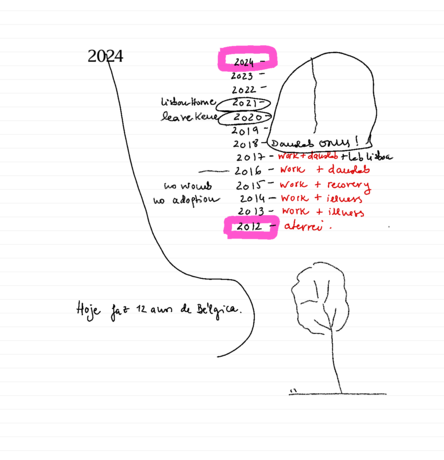 2024
2024 -
2023 -
2022 -
Lisbon Home 2021 -
leave Kene 2020 -
2019 -
2018 - Daudab only!
2017 - work + daudab + Lab Lisboa
2016 - work + daudab
no womb 2015 - work + recovery
no adoption 2014 - work + illness
2013 - work + illness
2012 - aterrei.
Hoje faz 12 anos de Bélgica.